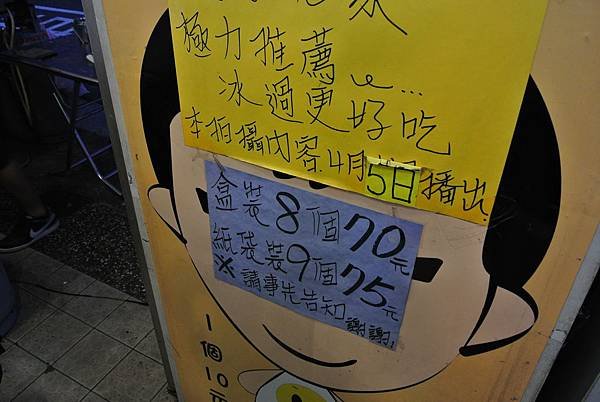 極力推薦
冰過更好吃
本拍攝內容.4月5日播出.
盒裝8個70元
紙袋裝9個75元
※請事先告知,謝謝!
1個10元